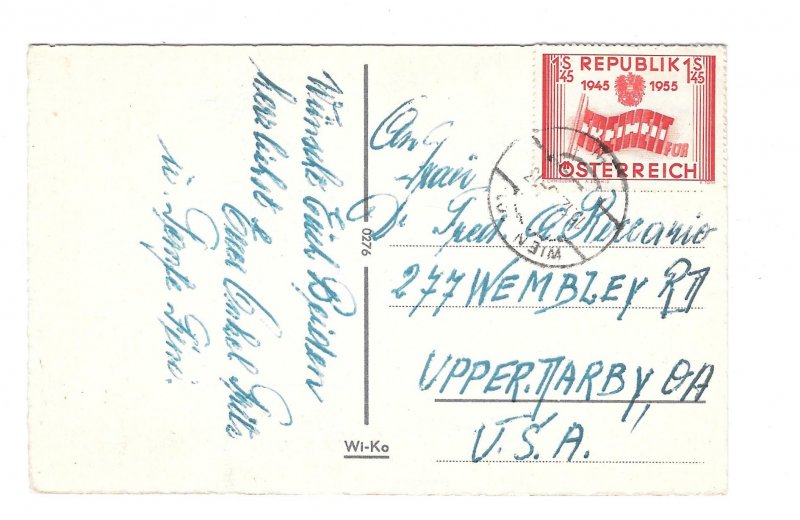 Wünsche Euch Beiden
herzlichst
Euer Onkel Fritz
u. Tante Fini.
0276
Wi-Ko
1S 45 REPUBLIK 1S 45
1945 1955
FREIHEIT FÜR
ÖSTERREICH
WIEN
An
Fred A. Roccario
277 WEMBLEY RD
UPPER DARBY, PA
U.S.A.